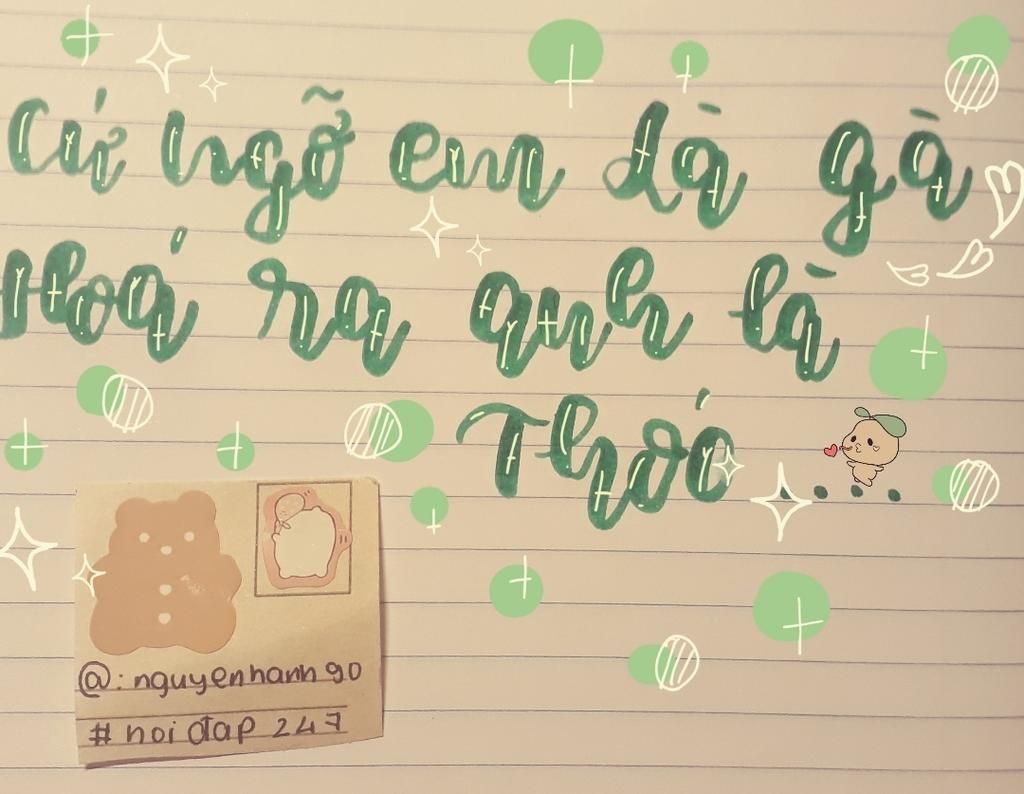 Cứ ngỡ em là gà
Hoá ra anh là
Thóc...
@: nguyenhanh90
#noi đap 247